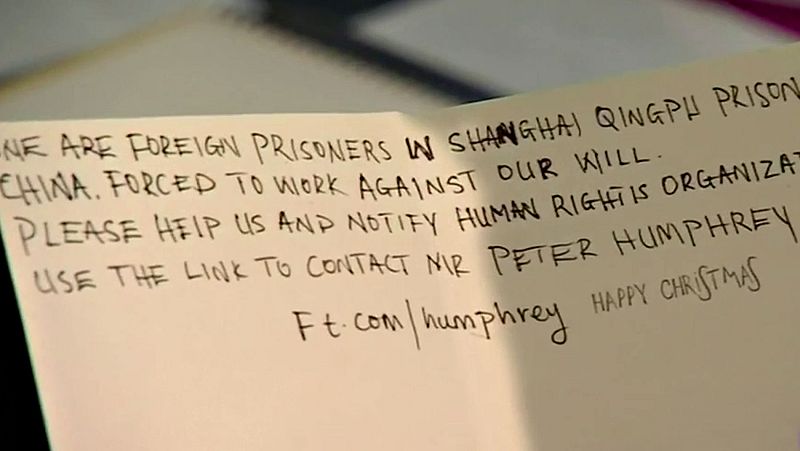 WE ARE FOREIGN PRISONERS IN SHANGHAI QINGPU PRISON
CHINA. FORCED TO WORK AGAINST OUR WILL.
PLEASE HELP US AND NOTIFY HUMAN RIGHTS ORGANIZAT
USE THE LINK TO CONTACT MR PETER HUMPHREY
Ft.com/humphrey HAPPY CHRISTMAS